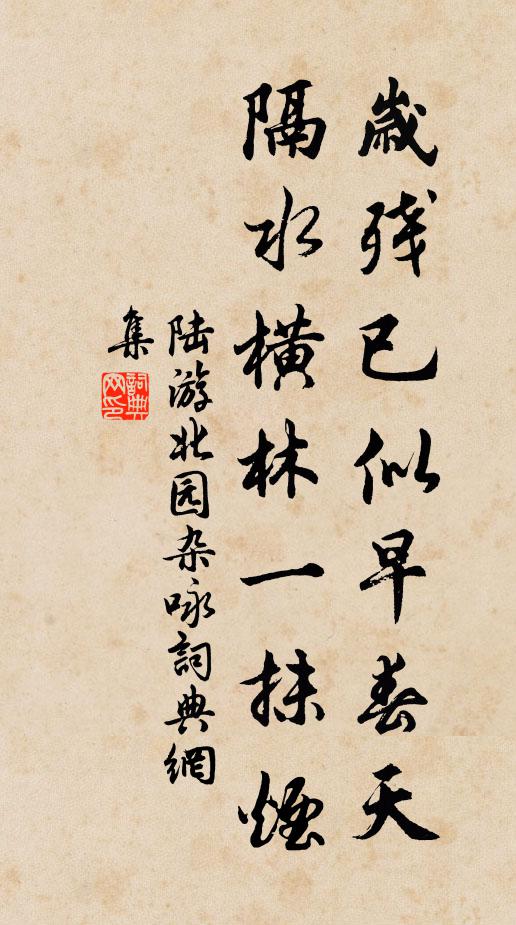 歲残已似早春天
隔水橫林一抹煙
陆游北园杂咏詞典網
集
詞典網印